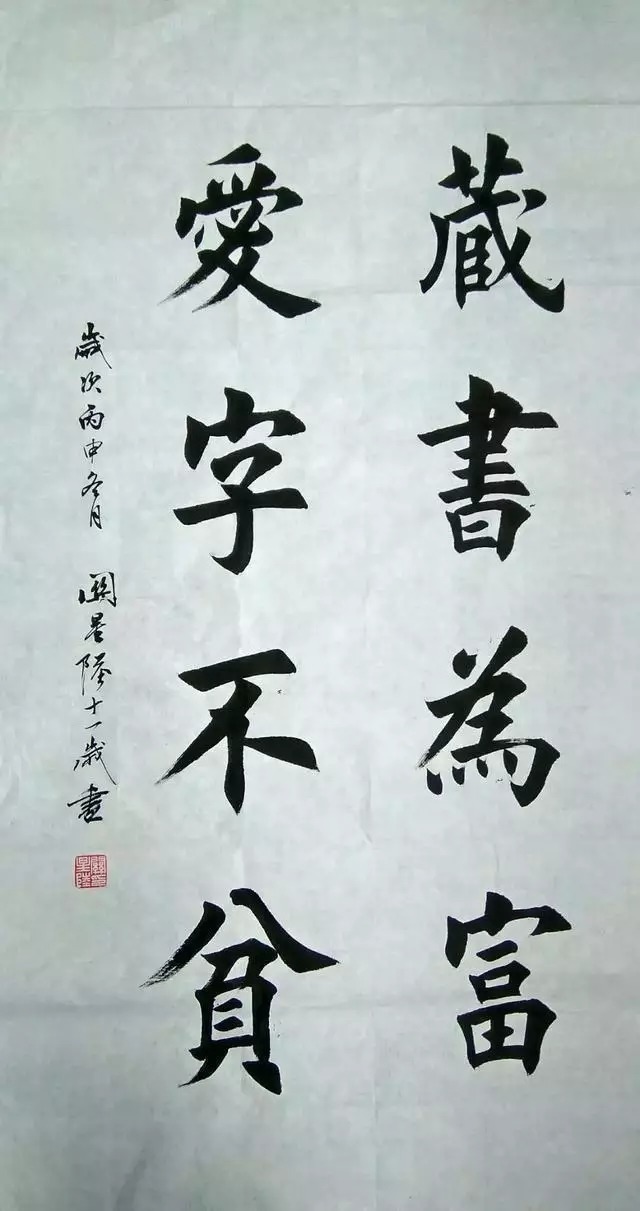 藏書為富
愛字不貧
歲次丙申冬月 關星陸十一歲書